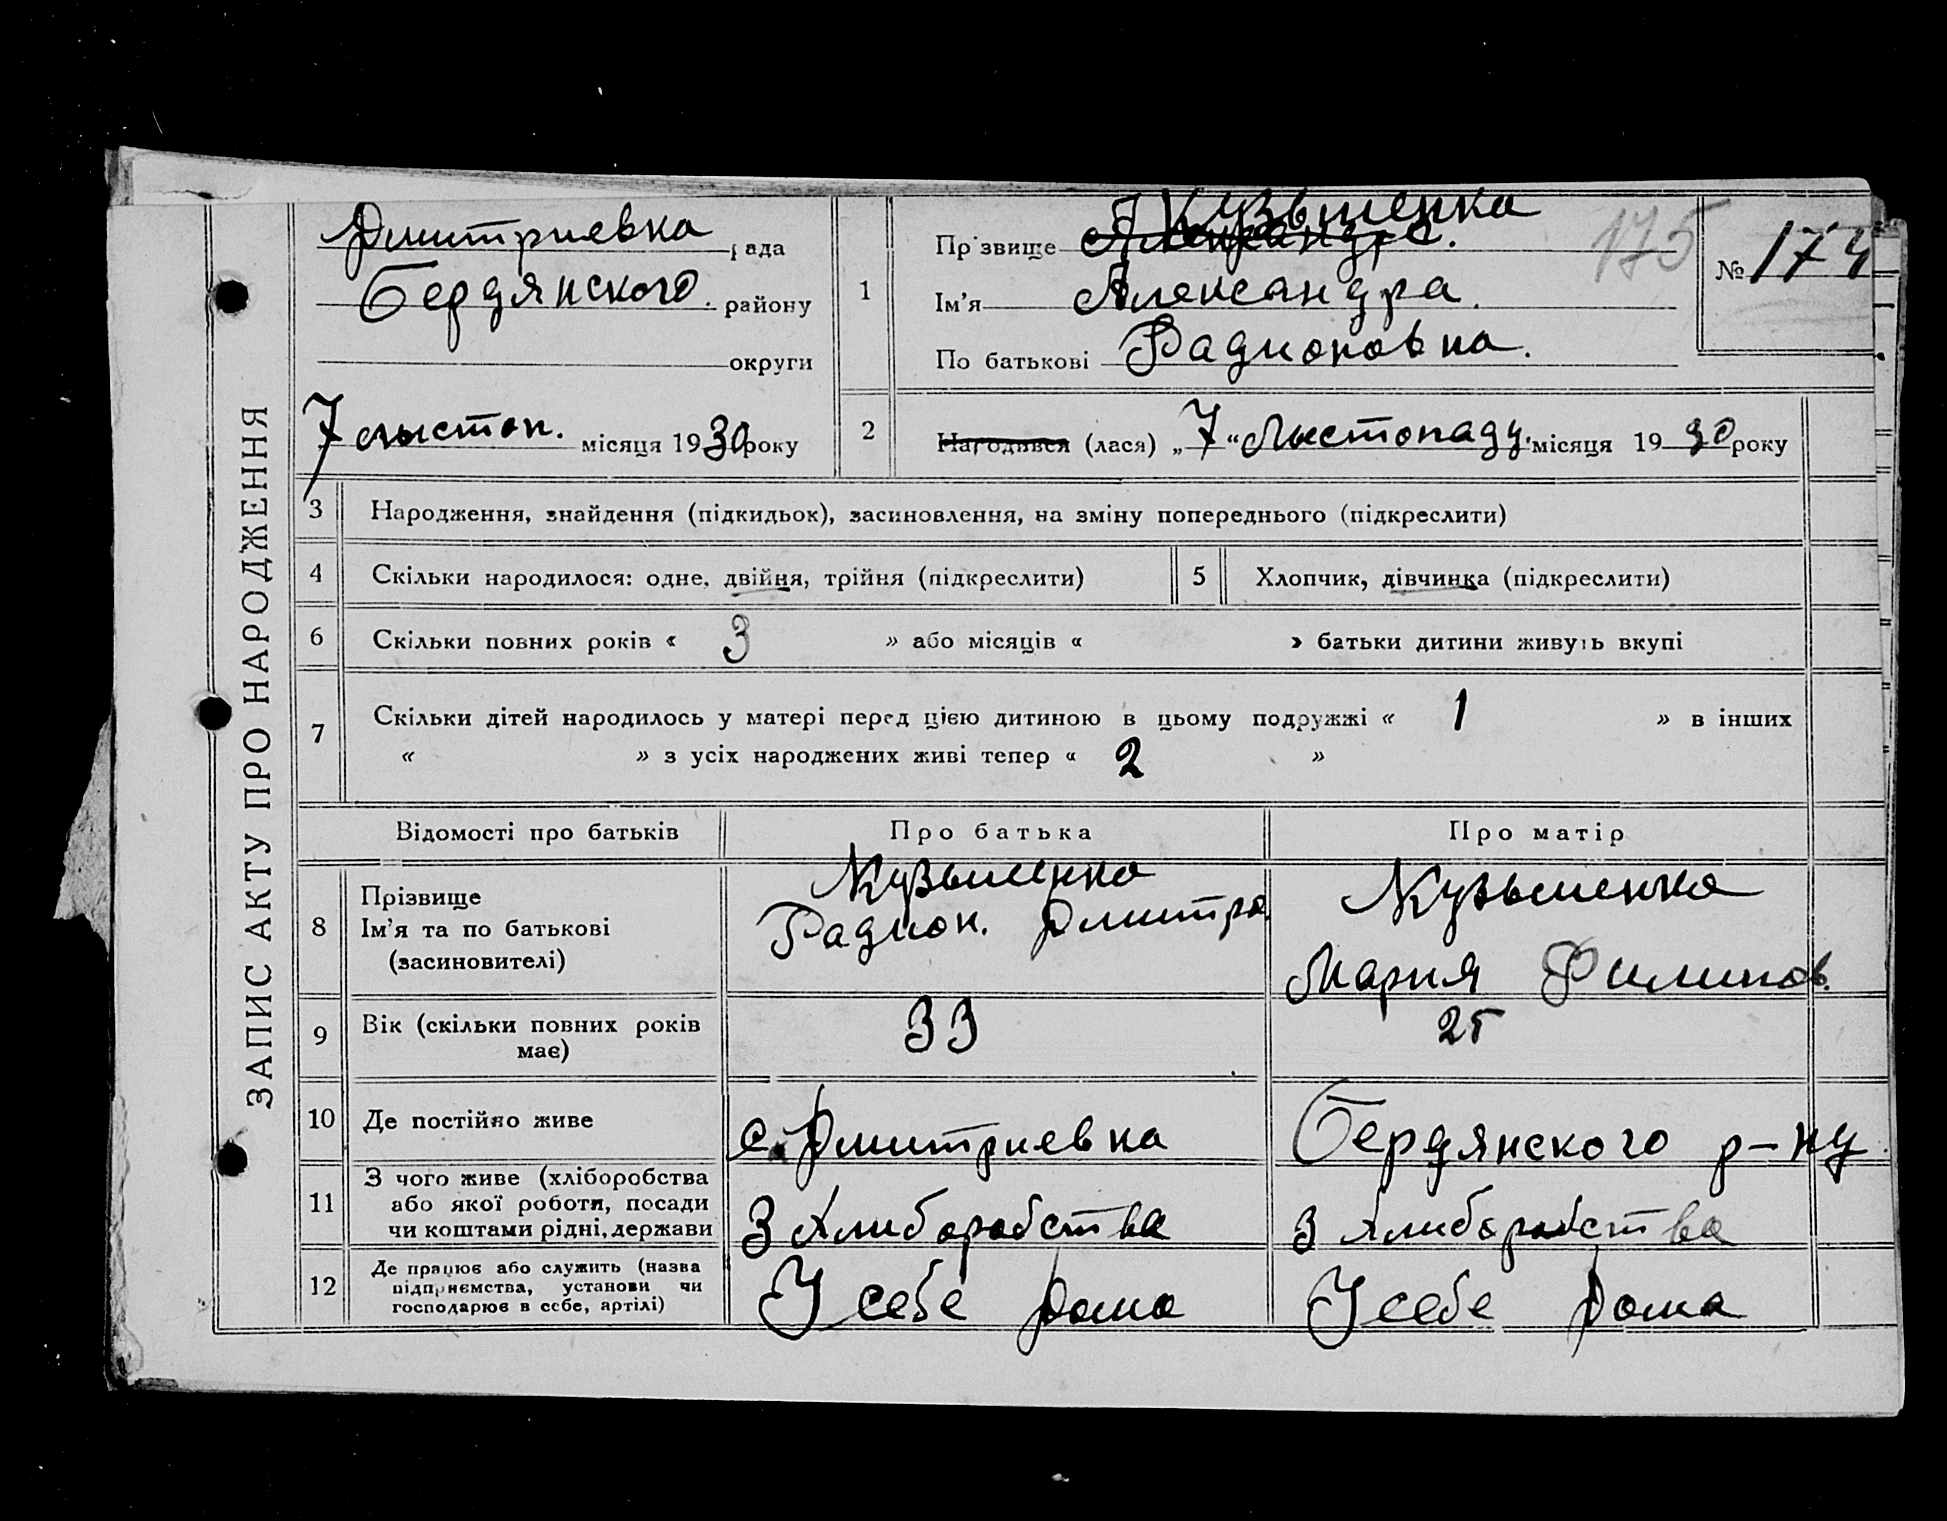 ЗАПИС АКТУ ПРО НАРОДЖЕННЯ
Дмитриевка рада
Бердянского. району
округи
7 лыстоп. місяця 1930 року
1
Кузьменко
Прізвище Александра.
Ім'я Александра.
По батькові Радионовна.
175
№ 174
2 Народився (лася) „7“ Лыстопаду. місяця 1930 року
3 Народження, знайдення (підкидьок), засиновлення, на зміну попереднього (підкреслити)
4 Скільки народилося: одне, двійня, трійня (підкреслити)
5 Хлопчик, дівчинка (підкреслити)
6 Скільки повних років « 3 » або місяців « » батьки дитини живуть вкупі
7 Скільки дітей народилось у матері перед цією дитиною в цьому подружжі « 1 » в інших
« » з усіх народжених живі тепер « 2 »
Відомості про батьків Про батька Про матір
8 Прізвище
Ім'я та по батькові
(засиновителі)
Кузьменко
Радион. Дмитро.
Кузьменко
Мария Филипов.
9 Вік (скільки повних років
має)
33 25
10 Де постійно живе с. Дмитриевка Бердянского р-ну
11 З чого живе (хліборобства
або якої роботи, посади
чи коштами рідні, держави
З Хлиборобства З хлиборобства
12 Де працює або служить (назва
підприємства, установи чи
господарює в себе, артілі)
У себе дома У себе дома